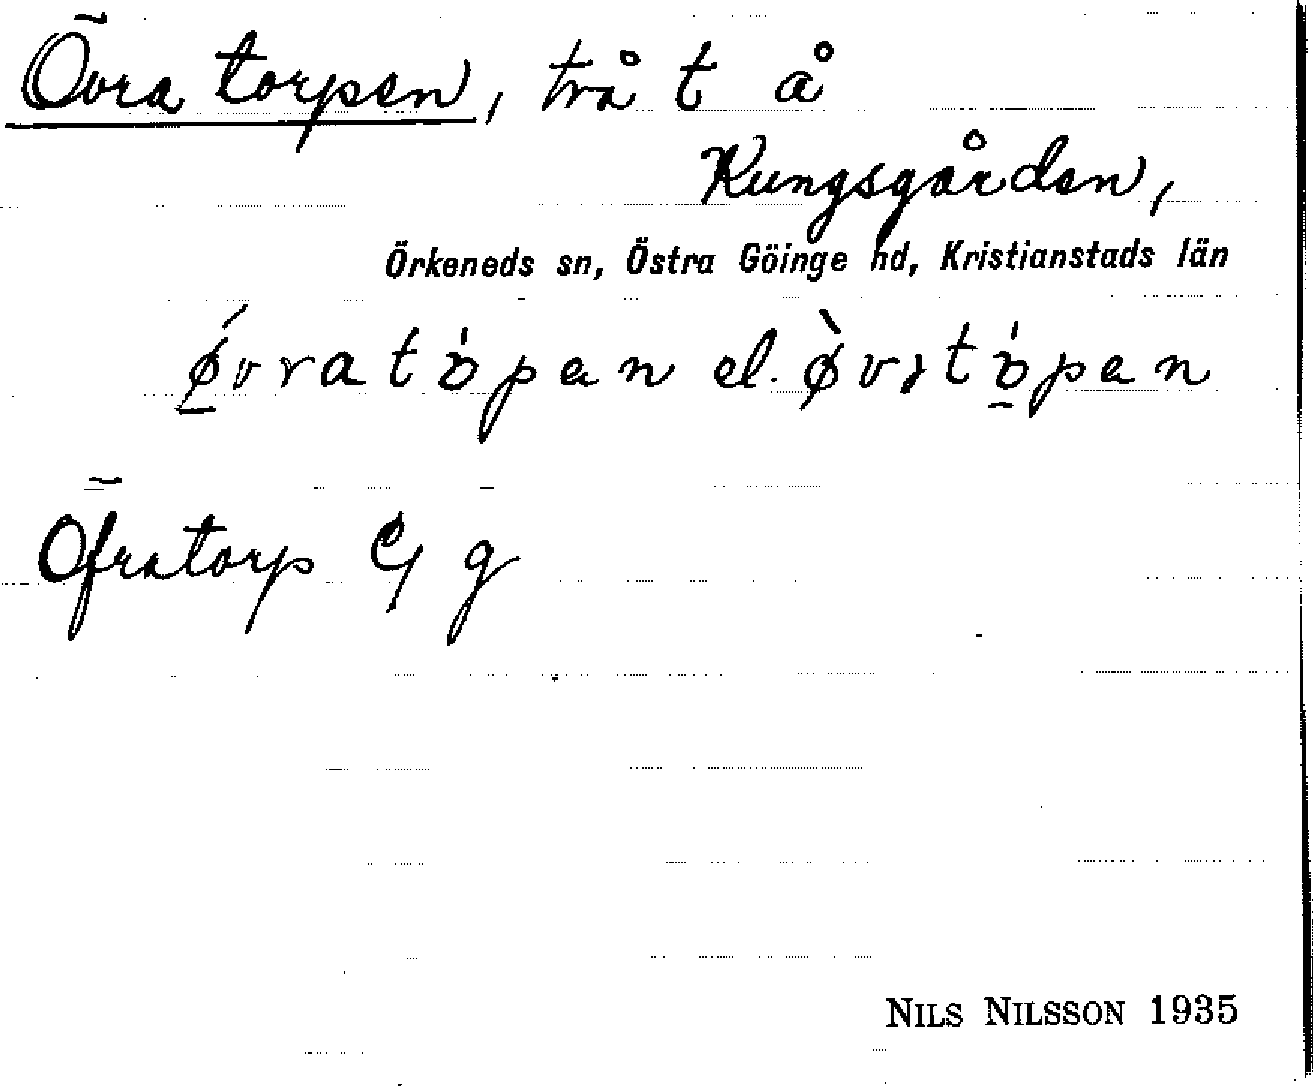 Övra torpen, två t å
Kungsgården,
Örkeneds sn, Östra Göinge hd, Kristianstads län
øvratöpen el. øvstöpen
Öfratorp g
NILS NILSSON 1935